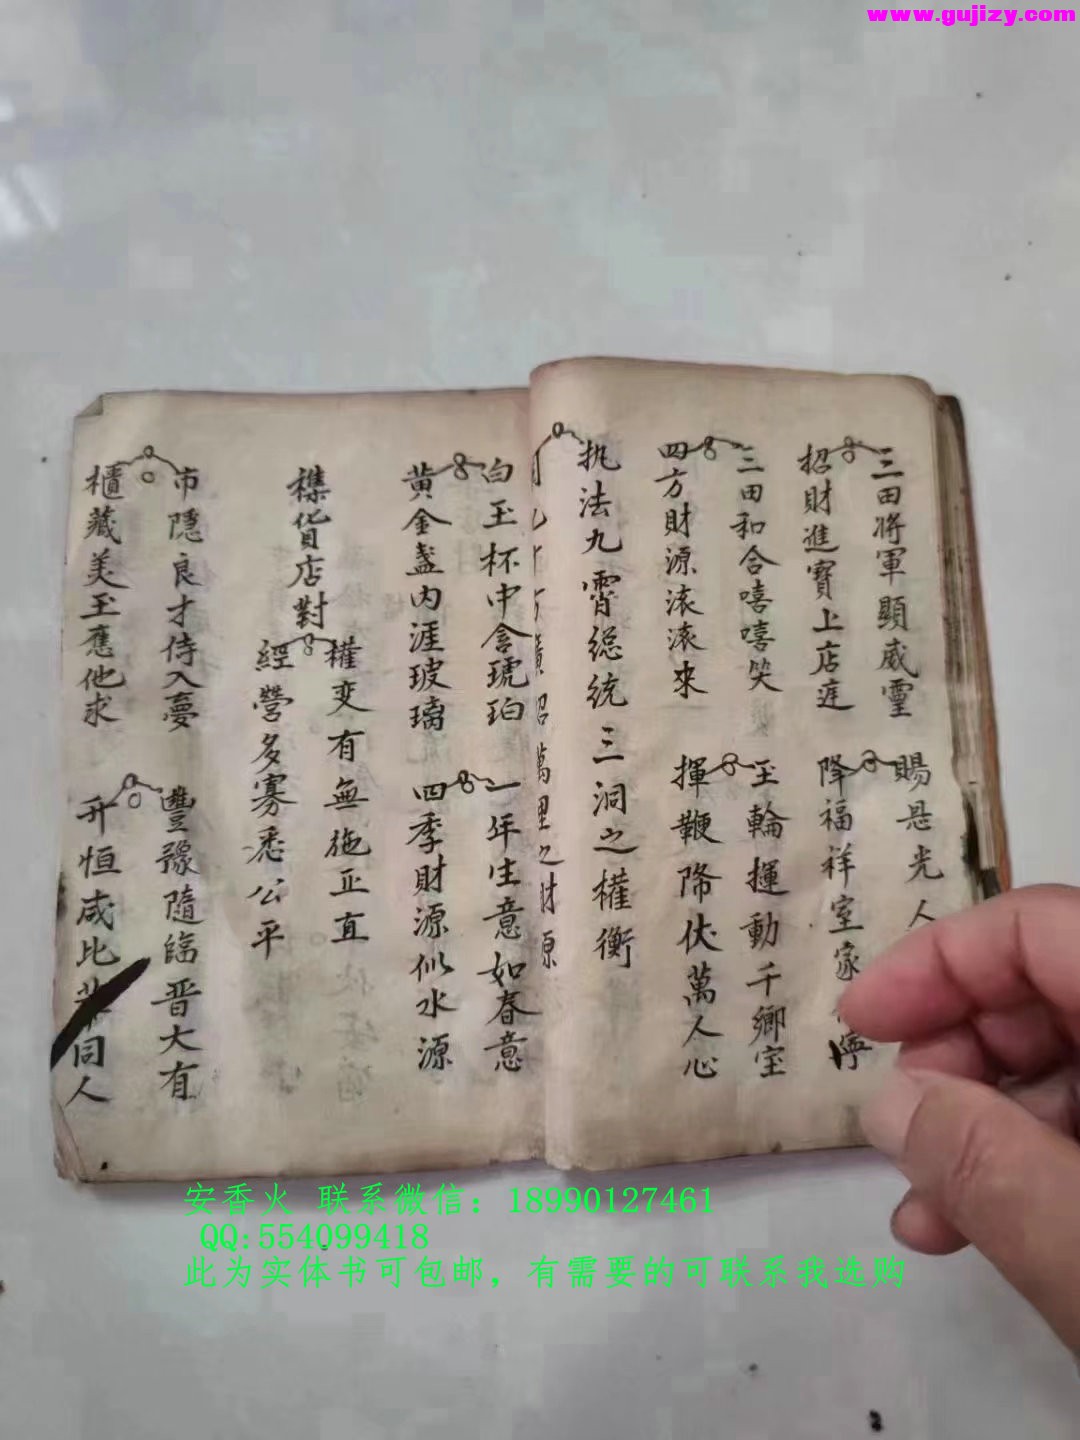 www.gujizy.com
三田将軍顯威靈
招財進寶上店進
賜恩光人
降福祥室家
寧
三田和合嘻嘻笑
四方財源滚滚來
玉輪運動千鄉室
揮鞭降伏萬人心
执法九霄総統三洞之權衡
萬里之財源
白玉杯中含琥珀
黄金盏内涯玻璃
一年生意如春意
四季財源似水源
雜貨店對
權变有無施正直
經營多寡悉公平
市隱良才侍入夢
櫃藏美玉應他求
豐豫隨臨晋大有
升恒咸比
同人
安香火 联系微信：18990127461
QQ:554099418
此为实体书可包邮，有需要的可联系我选购